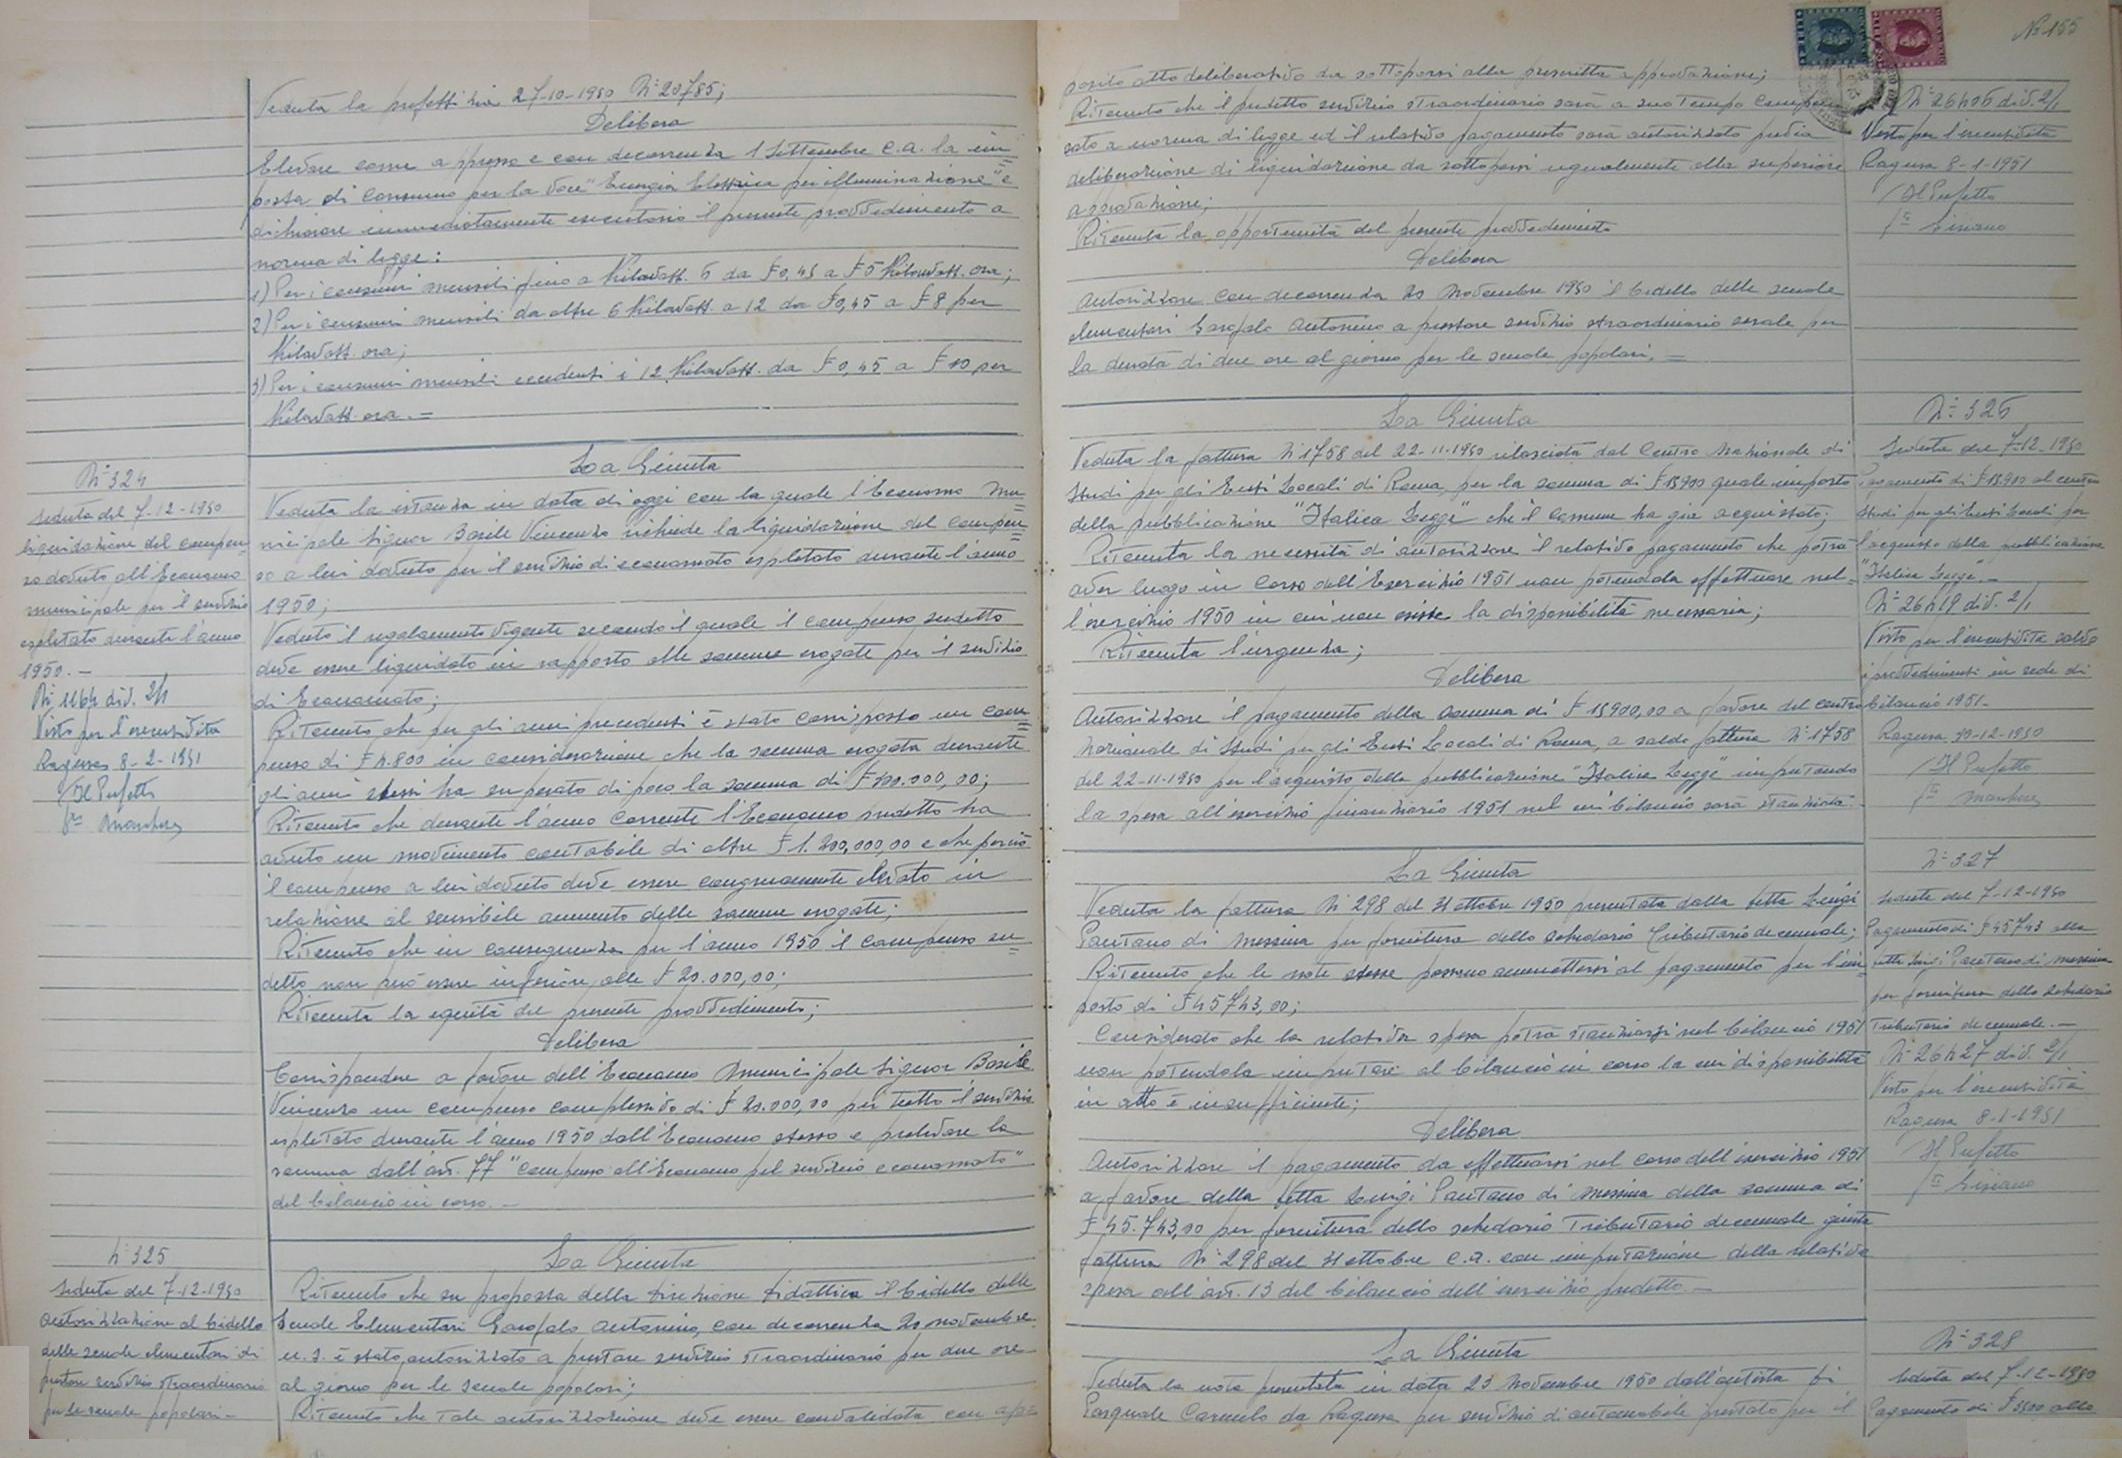 Veduta la prefettizia 27-10-1950 N° 20785;
Delibera
Elevare come appresso e con decorrenza 1 Settembre c.a. la im=
posta di consumo per la voce "Energia Elettrica per illuminazione" e
dichiarare immediatamente esecutorio il presente provvedimento a
norma di legge:
1) Per i consumi mensili fino a Kilowatt. 6 da £ 0,45 a £ 5 Kilowatt. ora;
2) Per i consumi mensili da oltre 6 Kilowatt. a 12 da £ 0,45 a £ 8 per
Kilowatt. ora;
3) Per i consumi mensili eccedenti i 12 Kilowatt. da £ 0,45 a £ 10 per
Kilowatt. ora. =
N° 324
Seduta del 7-12-1950
Liquidazione del compen=
so dovuto all'Economo
municipale per il servizio
espletato durante l'anno
1950. -
N° 1164 div. 2/1
Visto per l'esecutività
Ragusa 8-2-1951
Il Prefetto
La Giunta
Veduta la istanza in data di oggi con la quale l'Economo Mu=
nicipale Signor Basile Vincenzo richiede la liquidazione del compen=
so a lui dovuto per il servizio di economato espletato durante l'anno
1950;
Veduto il regolamento vigente secondo il quale il compenso sudetto
deve essere liquidato in rapporto alle somme erogate per il servizio
di Economato;
Ritenuto che per gli anni precedenti è stato corrisposto un com=
penso di £ 4.800 in considerazione che la somma erogata durante
gli anni stessi ha superato di poco la somma di £ 100.000,00;
Ritenuto che durante l'anno corrente l'Economo sudetto ha
avuto un movimento contabile di oltre £ 1.200,000,00 e che perciò
il compenso a lui dovuto deve essere congruamente elevato in
relazione al sensibile aumento delle somme erogate;
Ritenuto che in conseguenza per l'anno 1950 il compenso su=
detto non può essere inferiore alle £ 20.000,00;
Ritenuta la equità del presente provvedimento;
Delibera
Corrispondere a favore dell'Economo Municipale Signor Basile
Vincenzo un compenso complessivo di £ 20.000,00 per tutto il servizio
espletato durante l'anno 1950 dall'Economo stesso e prelevare la
somma dall'art. 77 "compenso all'Economo pel servizio economato"
del bilancio in corso. -
N° 325
Seduta del 7-12-1950
Autorizzazione al bidello
delle scuole elementari di
prestare servizio straordinario
per le scuole popolari -
La Giunta
Ritenuto che su proposta della Direzione Didattica il bidello delle
Scuole Elementari Garofalo Antonino, con decorrenza 20 novembre
u.s. è stato autorizzato a prestare servizio straordinario per due ore
al giorno per le scuole popolari;
Ritenuto che tale autorizzazione deve essere convalidata con apo
N° 155
posito atto deliberativo da sottoporsi alla prescritta approvazione;
Ritenuto che il predetto servizio straordinario sarà a suo tempo compen
sato a norma di legge ed il relativo pagamento sarà autorizzato previa
deliberazione di liquidazione da sottoporsi ugualmente alla superiore
approvazione;
Ritenuta la opportunità del presente provvedimento
Delibera
Autorizzare con decorrenza 20 Novembre 1950 il bidello delle scuole
elementari Garofalo Antonino a prestare servizio straordinario serale per
la durata di due ore al giorno per le scuole popolari. =
N° 26406 div. 2/1
Visto per l'esecutività
Ragusa 8-1-1951
Il Prefetto
La Giunta
Veduta la fattura N° 1758 del 22-11-1950 rilasciata dal Centro Nazionale di
Studi per gli Enti Locali di Roma, per la somma di £ 15900 quale importo
della pubblicazione "Italica Legge" che il Comune ha già acquistato;
Ritenuta la necessità di autorizzare il relativo pagamento che potrà
aver luogo in corso dell'Esercizio 1951 non potendola effettuare nel=
l'esercizio 1950 in cui non esiste la disponibilità necessaria;
Ritenuta l'urgenza;
Delibera
Autorizzare il pagamento della somma di £ 15900,00 a favore del centro
Nazionale di Studi per gli Enti Locali di Roma, a saldo fattura N° 1758
del 22-11-1950 per l'acquisto della pubblicazione "Italica Legge" imputando
la spesa all'esercizio finanziario 1951 nel cui bilancio sarà stanziata.
N° 326
Seduta del 7-12-1950
Pagamento di £ 15900 al centro
Studi per gli Enti Locali per
l'acquisto della pubblicazione
"Italica Legge". -
N° 26419 div. 2/1
Visto per l'esecutività salvo
i provvedimenti in sede di
bilancio 1951 -
Ragusa 30-12-1950
Il Prefetto
La Giunta
Veduta la fattura N° 298 del 31 ottobre 1950 presentata dalla Ditta Luigi
Pantano di Messina per fornitura dello schedario Tributario decennale;
Ritenuto che le note stesse possono ammettersi al pagamento per l'im=
porto di £ 45743,00;
Considerato che la relativa spesa potrà stanziarsi nel bilancio 1951
non potendola imputare al bilancio in corso la cui disponibilità
in atto è insufficiente;
Delibera
Autorizzare il pagamento da effettuarsi nel corso dell'esercizio 1951
a favore della Ditta Luigi Pantano di Messina della somma di
£ 45.743,00 per fornitura dello schedario Tributario decennale giusta
fattura N° 298 del 31 ottobre c.a. con imputazione della relativa
spesa all'art. 13 del bilancio dell'esercizio predetto. -
N° 327
Seduta del 7-12-1950
Pagamento di £ 45743 alla
Ditta Luigi Pantano di Messina
per fornitura dello schedario
Tributario decennale. -
N° 26427 div. 2/1
Visto per l'esecutività
Ragusa 8-1-1951
Il Prefetto
La Giunta
Veduta la nota presentata in data 23 Novembre 1950 dall'autista Di
Pasquale Carmelo da Ragusa per servizio di automobile prestato per il
N° 328
Seduta del 7-12-1950
Pagamento di £ allo